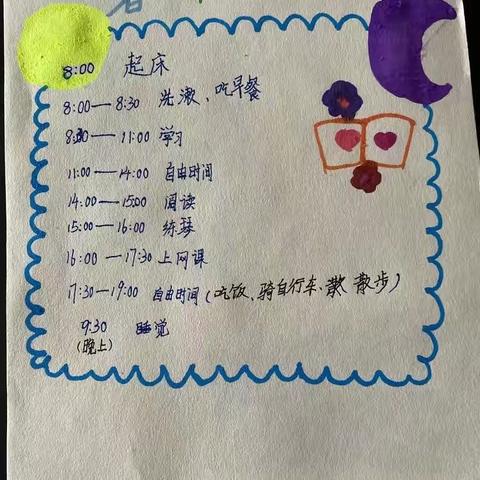 8:00 起床
8:00——8:30 洗漱、吃早餐
8:30——11:00 学习
11:00——14:00 自由时间
14:00——15:00 阅读
15:00——16:00 练琴
16:00——17:30 上网课
17:30—19:00 自由时间(吃饭、骑自行车、散步)
9:30 睡觉
(晚上)